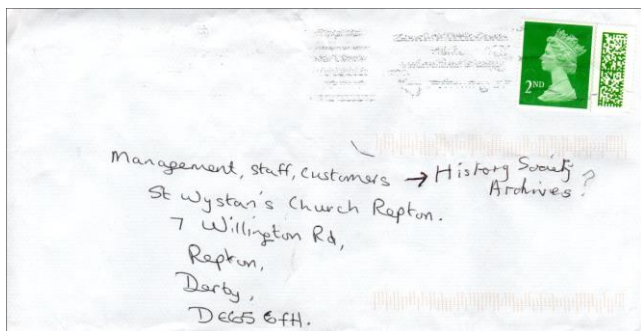 2ND
Management, staff, customers → History Society
Archives?
St Wystan's Church Repton.
7 Willington Rd,
Repton,
Derby,
DE65 6FH.